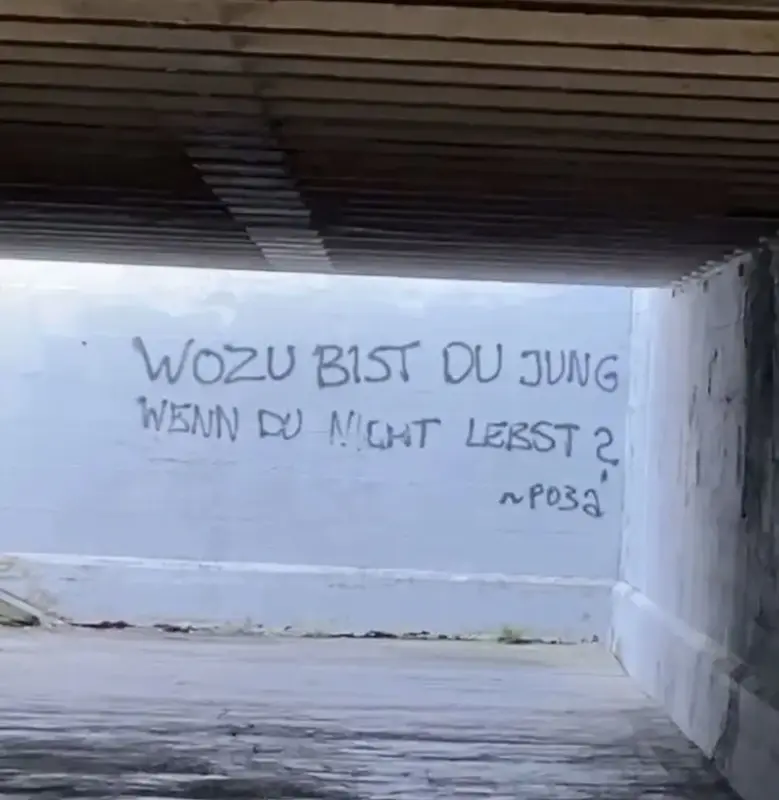 WOZU BIST DU JUNG
WENN DU NICHT LEBST?
~POЗA